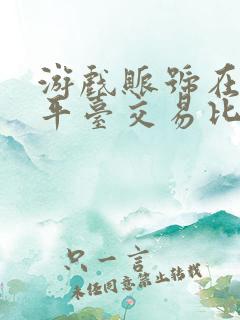 游戲賬號在
平臺交易比
只一言
未经同意禁止转载